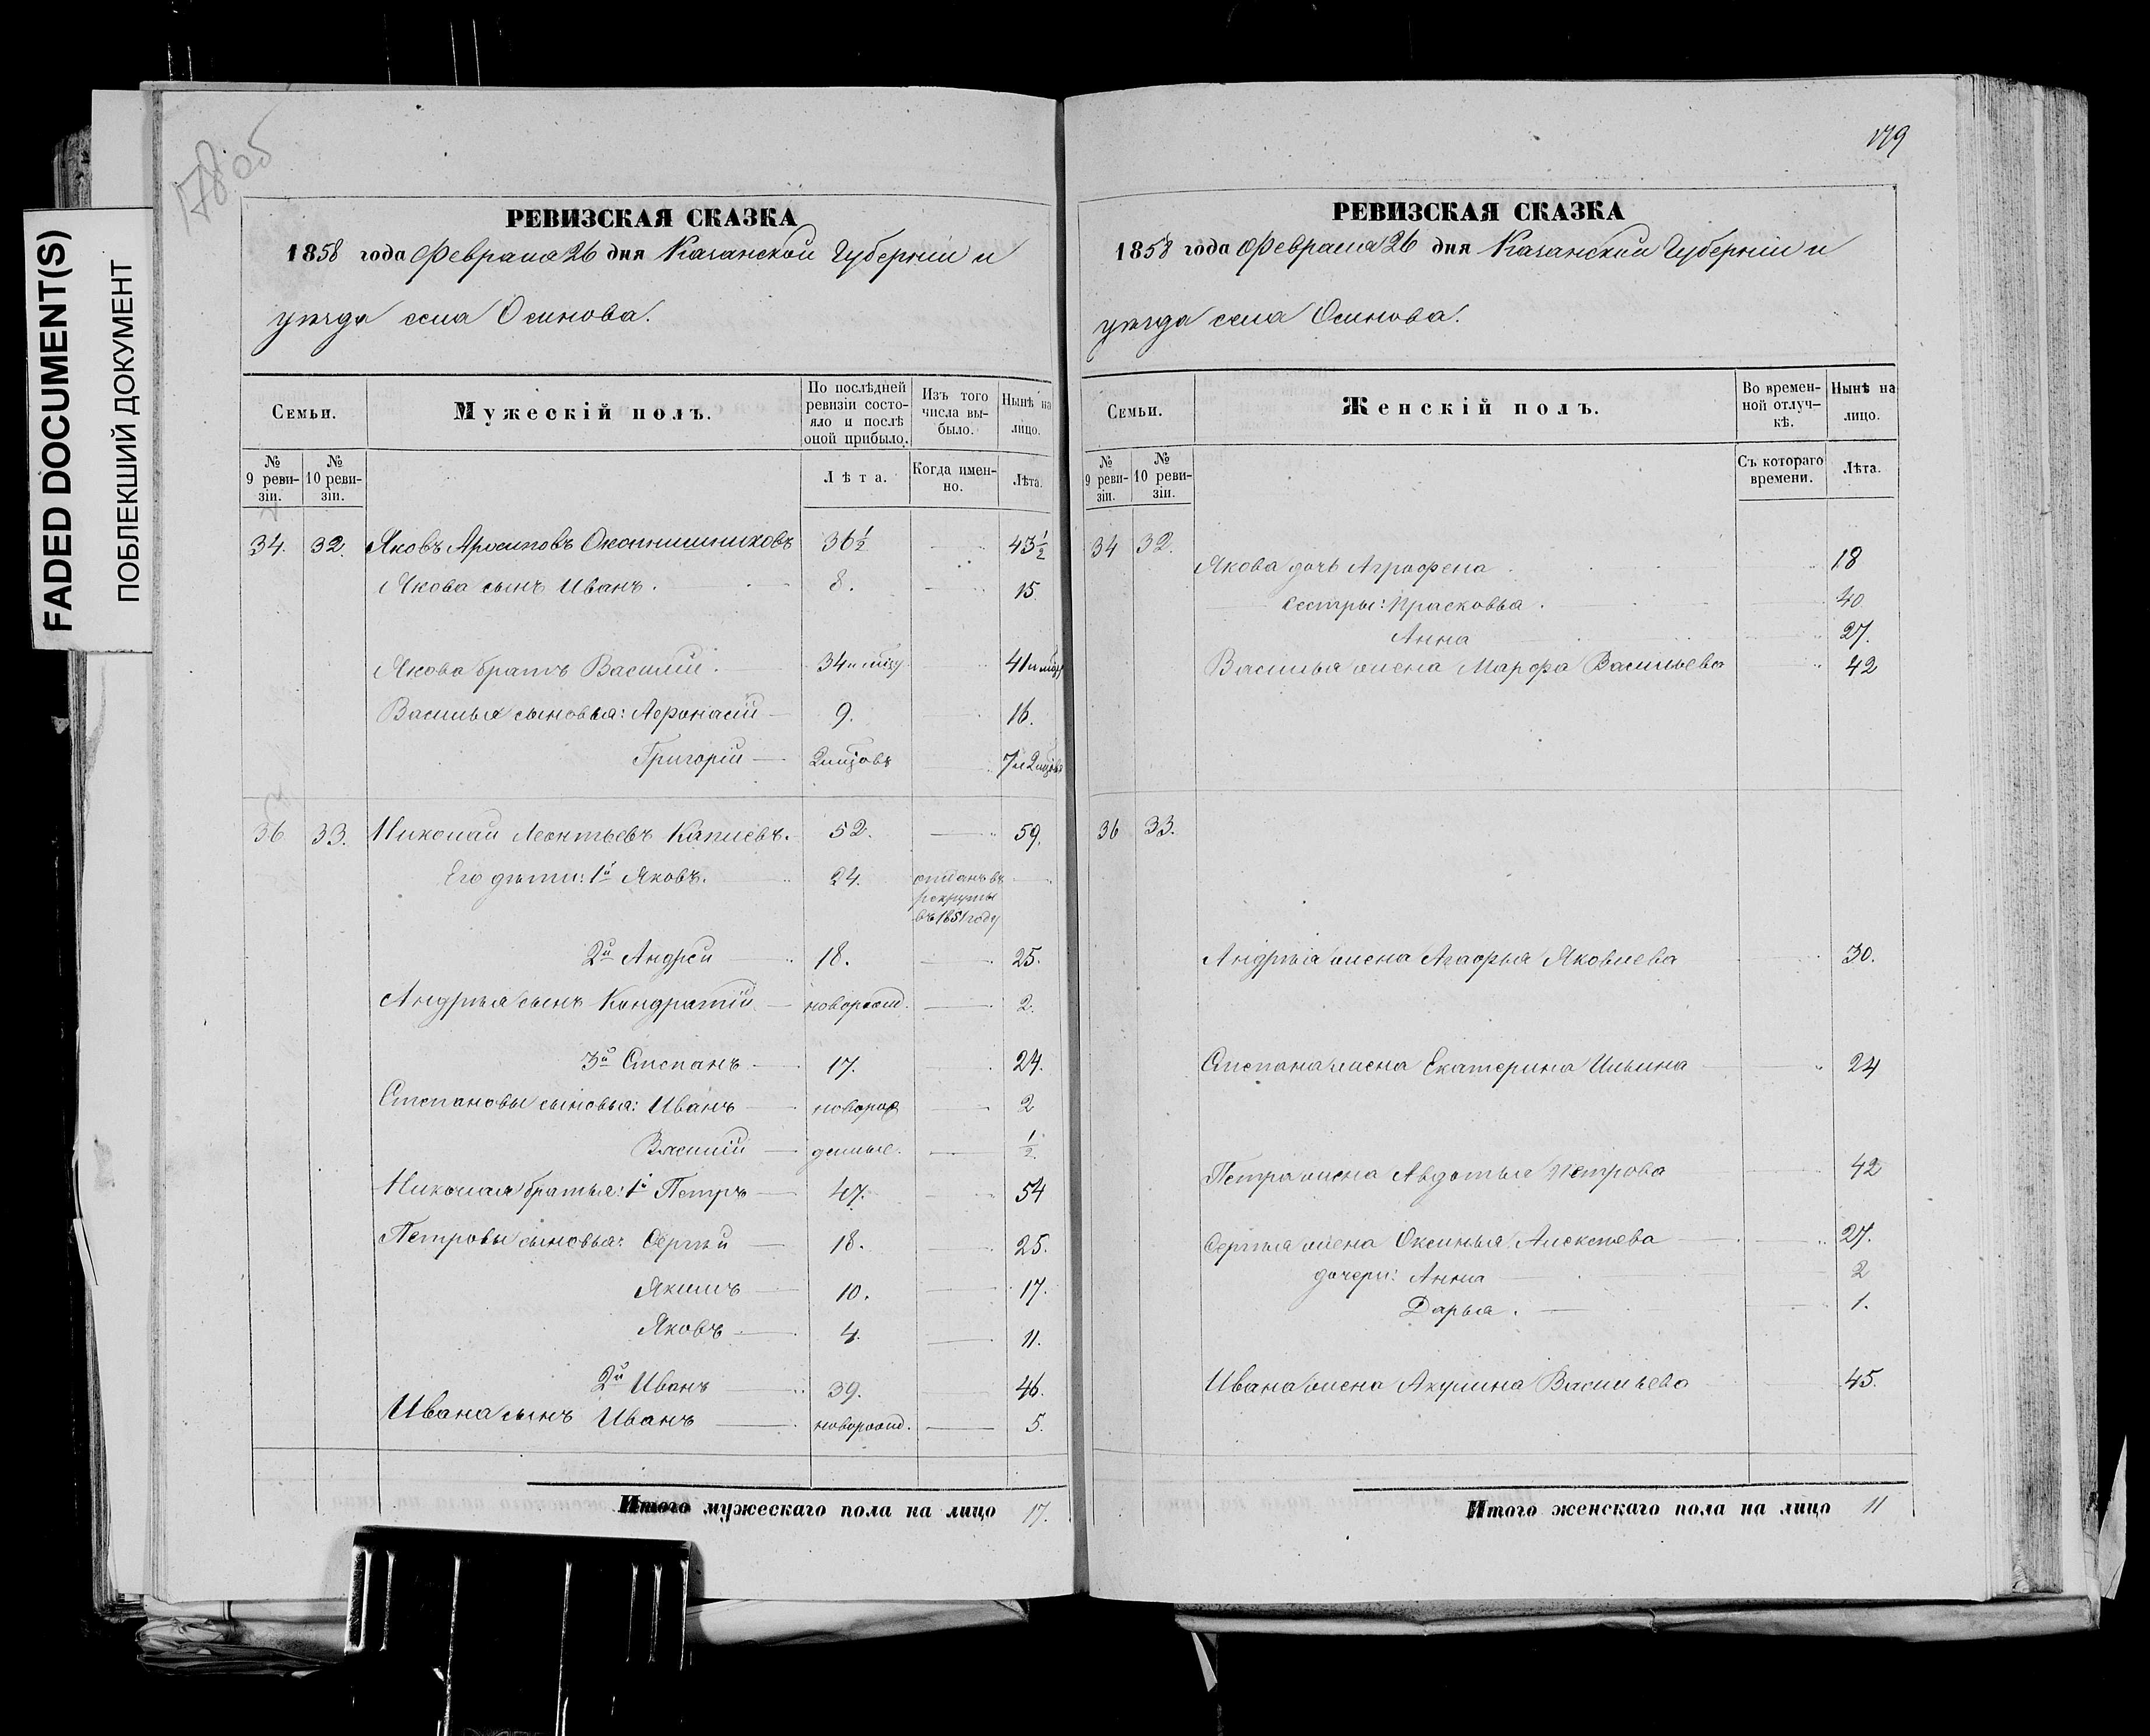 FADED DOCUMENT(S)
ПОБЛЕКШИЙ ДОКУМЕНТ
178 об
РЕВИЗСКАЯ СКАЗКА
1858 года Февраля 26 дня Казанской Губерніи и
уѣзда села Осинова.
Семьи.
Мужескій полъ.
По послѣдней ревизіи состояло и послѣ оной прибыло.
Изъ того числа выбыло.
Нынѣ на лицо.
№ 9 ревизіи.
№ 10 ревизіи.
Лѣта.
Когда именно.
Лѣта.
34. 32. Яковъ Архиповъ 36½ 43½
Якова сынъ Иванъ. 8. 15
Якова братъ Василій. 34 41
Василья сыновья: Афонасій 9. 16.
Григорій 2 мцовъ 7 и 2 мцовъ
36 33. Николай Леонтьевъ 52. 59.
Его дѣти: 1й Яковъ. 24. отданъ въ
рекруты
въ 1851 году
2й Андрей 18. 25.
Андрея сынъ Кондратій новорожд. 2.
3й Степанъ 17. 24.
Степановы сыновья: Иванъ новорож 2
Василій денные. ½
Николая братья: 1й Петръ 47. 54
Петровы сыновья: Сергѣй 18. 25.
Якимъ 10. 17.
Яковъ 4. 11.
2й Иванъ 39. 46.
Ивана сынъ Иванъ новорожд. 5.
Итого мужескаго пола на лицо 17.
179
РЕВИЗСКАЯ СКАЗКА
1858 года Февраля 26 дня Казанской Губерніи и
уѣзда села Осинова.
Семьи.
Женскій полъ.
Во временной отлучкѣ.
Нынѣ на лицо.
№ 9 ревизіи.
№ 10 ревизіи.
Съ котораго времени.
Лѣта.
34 32.
Якова дочь Аграфена 18
сестры: Прасковья. 40
Анна 27.
Василья жена Марфа Васильева 42
36 33.
Андрея жена Агафья Яковлева 30.
Степана жена Екатерина Ильина 24
Петра жена Авдотья Петрова 42
Сергѣя жена Оксинья Алексѣева 27.
дочери: Анна 2
Дарья. 1.
Ивана жена Акулина Васильева 45.
Итого женскаго пола на лицо 11